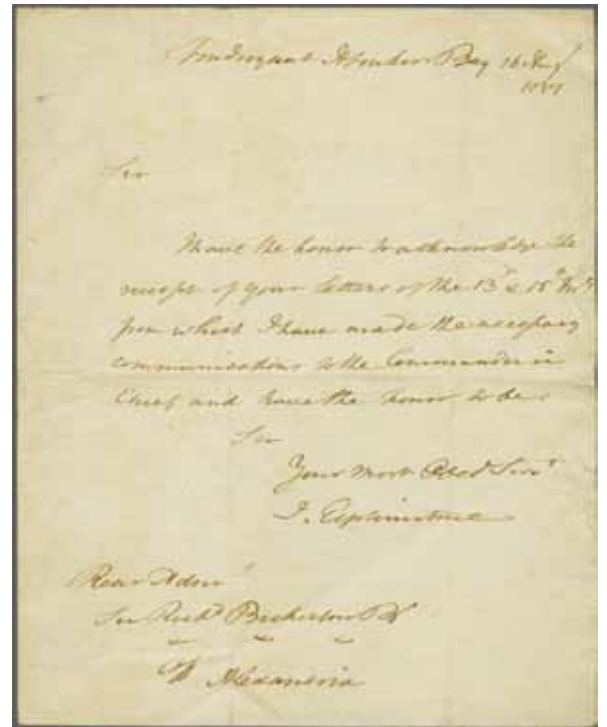 Foudroyant Aboukir Bay 16 Aug.t
1801
Sir
I have the honor to acknowledge the
receipt of your letters of the 13 & 15th Ins.t
from which I have made the necessary
communications to the Commander in
Chief and have the honor to be
Sir
Your most Obed Serv.t
J. Elphinstone
Rear Adm.l
Sir Rich.d Bickerton B.t
Alexandria